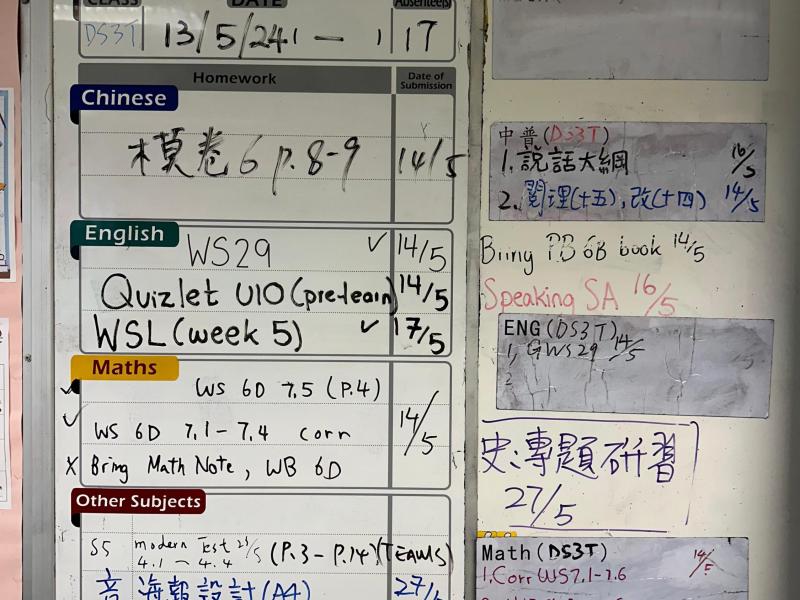 CLASS DATE Absentees
DS3T 13/5/24 17
Homework Date of Submission
Chinese
模卷6 p.8-9 14/5
English
WS29 ✓ 14/5
Quizlet U10 (pre-learn) 14/5
WSL (week 5) ✓ 17/5
Maths
✓ WS 6D 7.5 (P.4) 14/5
✓ WS 6D 7.1 - 7.4 corr
X Bring Math Note, WB 6D
Other Subjects
modern Test 23/5 (P.3 - P.14) (TEAMS)
4.1 - 4.4
音 海報設計 (A4) 27/5
中普 (DS3T)
1. 說話大綱 16/5
2. 閱理(十五), 改(十四) 14/5
Bring P.B 6B book 14/5
Speaking SA 16/5
ENG (DS3T)
1, GWS29 14/5
2
史:專題研習
27/5
Math (DS3T)
1. Corr WS7.1-7.6 14/5